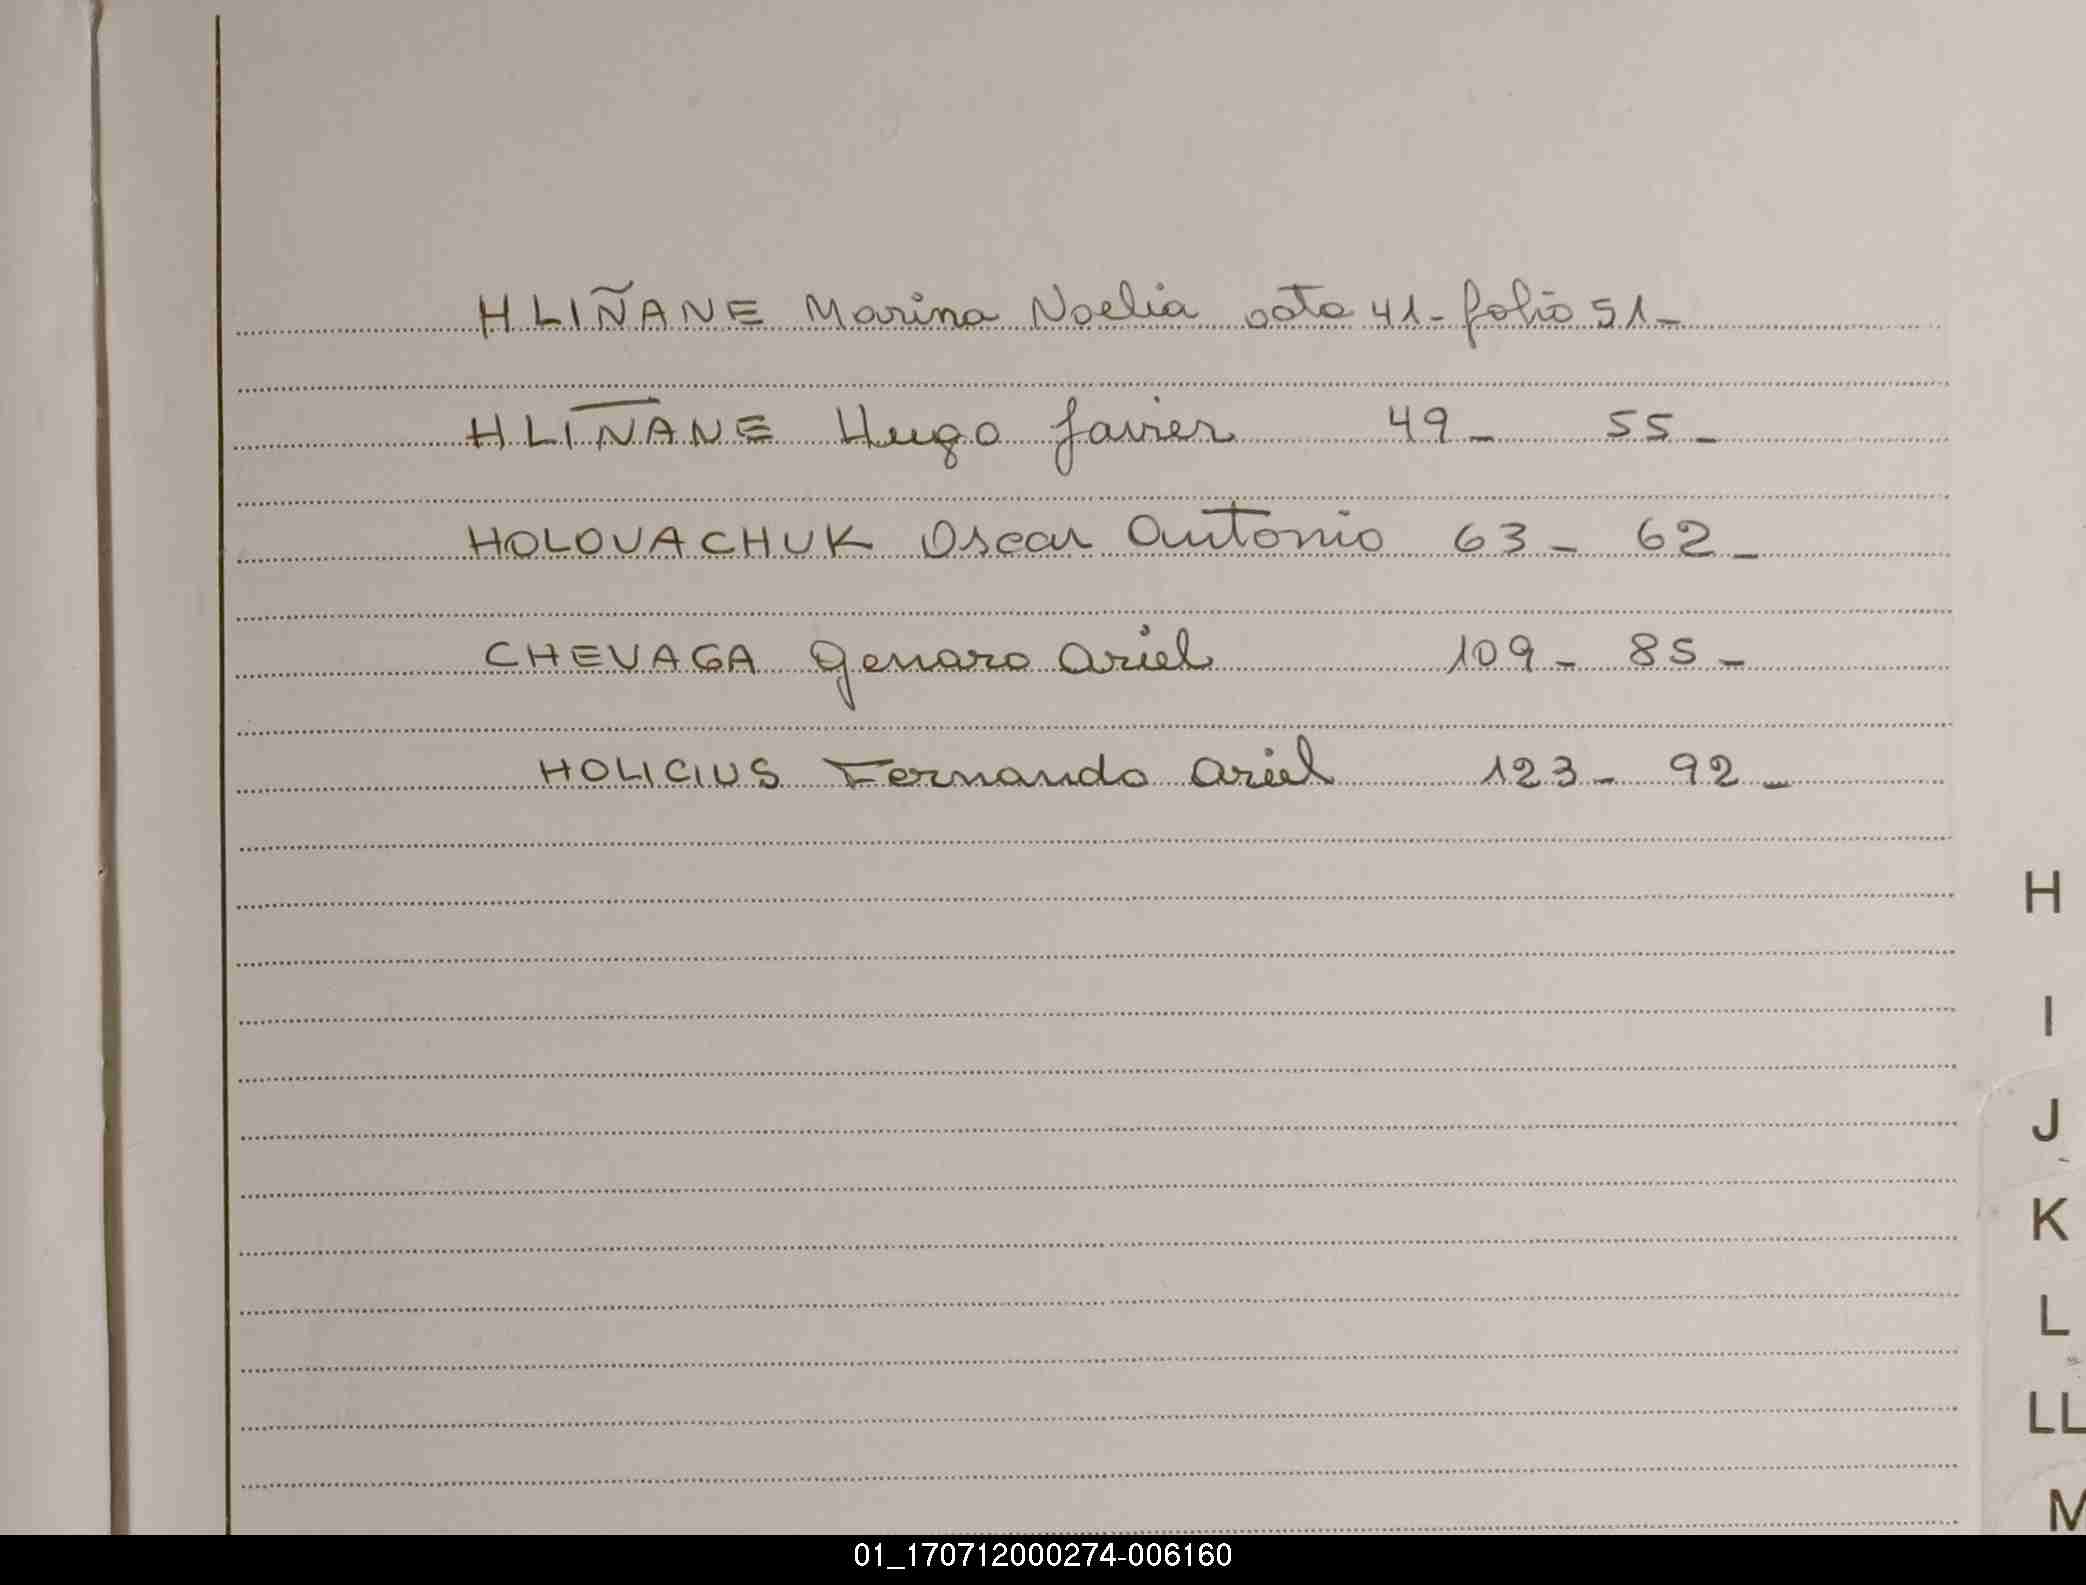 HLIÑANE Marina Noelia acta 41- folio 51-
HLIÑANE Hugo Javier 49- 55-
HOLOVACHUK Oscar Antonio 63- 62-
CHEVAGA Genaro Ariel 109- 85-
HOLICIUS Fernando Ariel 123- 92-
H
I
J
K
L
LL
M
01_170712000274-006160